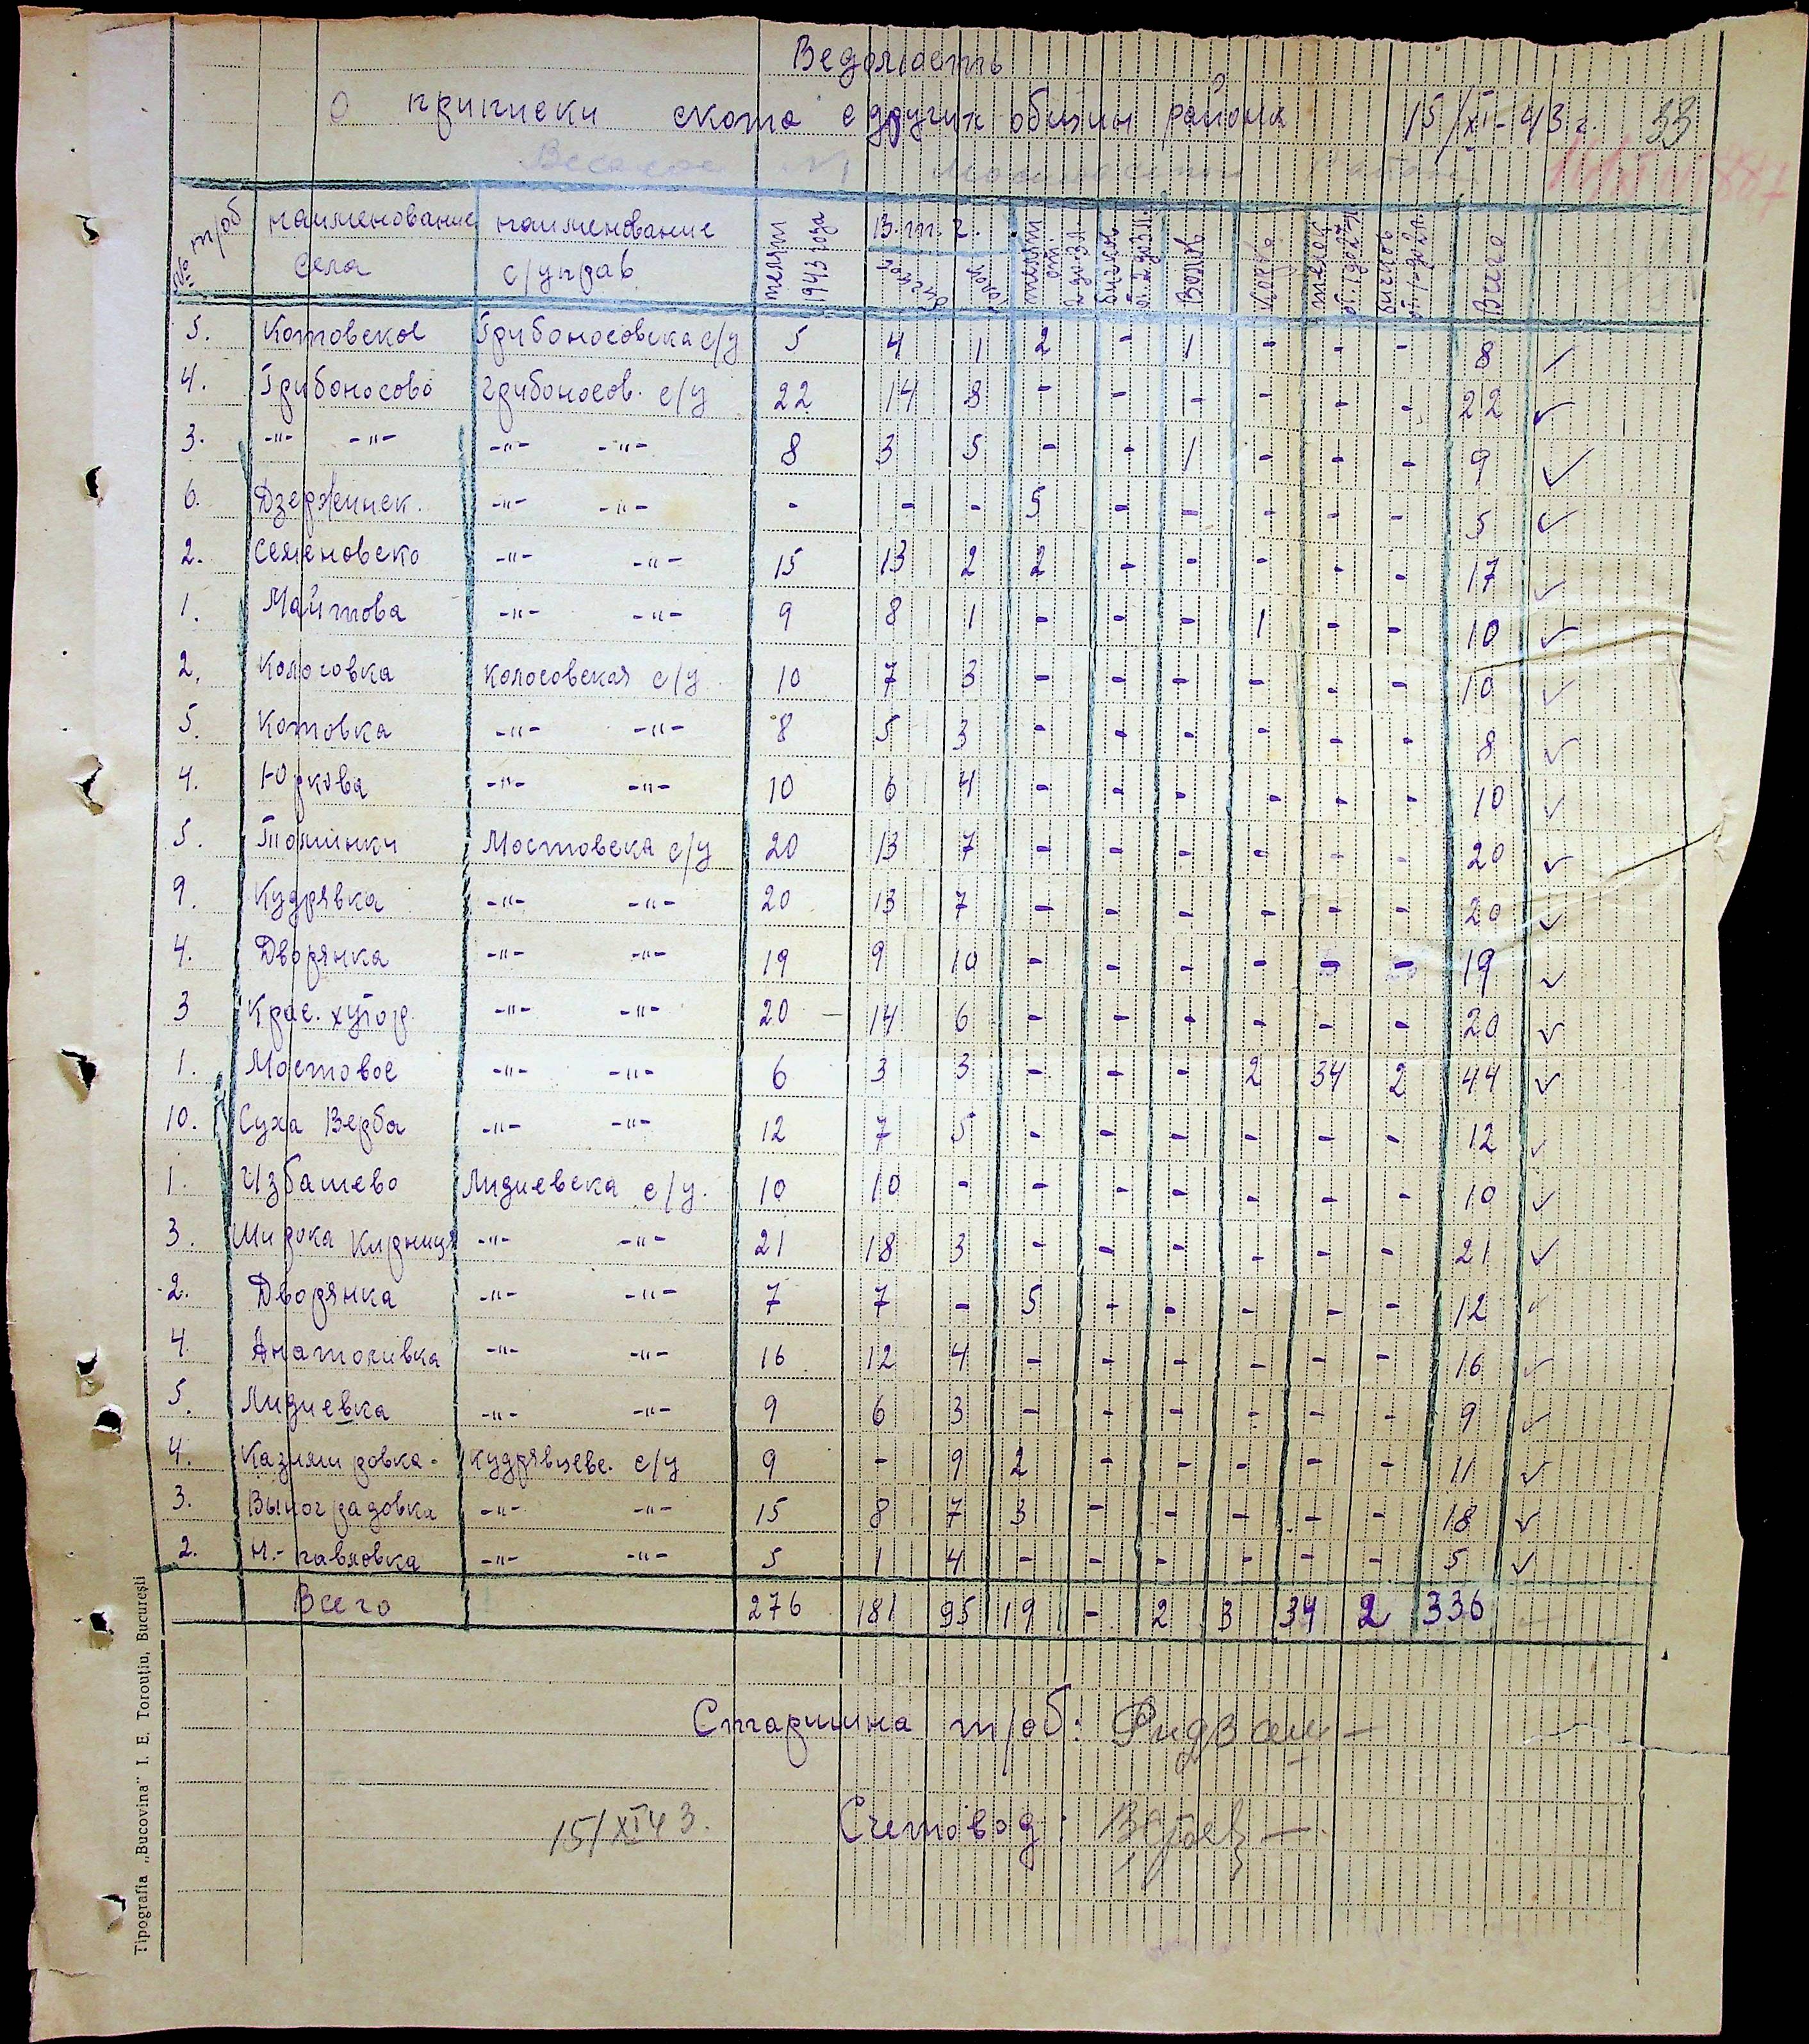 Ведомость
О приписки скота с других общин района 15/XI-43 г. 33
Веселое №1 Мостовского Района
№№ т/об наименование села наименование с/управ. телят 1943 года в т. г. бычков телок телят от 1 до 2 л. бычков Волов Коров телок от 1 до 2 л. бычков от 1 до 2 л. Всего
5. Котовское Грибоносовска с/у 5 4 1 2 - 1 - - - 8 ✓
4. Грибоносово Грибоносов. с/у 22 14 8 - - - - - - 22 ✓
3. -"- -"- -"- -"- 8 3 5 - - 1 - - - 9 ✓
6. Дзержинск. -"- -"- - - - 5 - - - - - 5 ✓
2. Семеновско -"- -"- 15 13 2 2 - - - - - 17 ✓
1. Майтова -"- -"- 9 8 1 - - - 1 - - 10 ✓
2. Колосовка Колосовская с/у 10 7 3 - - - - - - 10 ✓
5. Котовка -"- -"- 8 5 3 - - - - - - 8 ✓
4. Юркова -"- -"- 10 6 4 - - - - - - 10 ✓
5. Толшинки Мостовска с/у 20 13 7 - - - - - - 20 ✓
9. Кудрявка -"- -"- 20 13 7 - - - - - - 20 ✓
4. Дворянка -"- -"- 19 9 10 - - - - - - 19 ✓
3 Крас. хутор -"- -"- 20 - 14 6 - - - - - - 20 ✓
1. Мостовое -"- -"- 6 3 3 - - - 2 34 2 44 ✓
10. Суха Верба -"- -"- 12 7 5 - - - - - - 12 ✓
1. Избашево Лидиевска с/у. 10 10 - - - - - - - 10 ✓
3. Широка Кирниця -"- -"- 21 18 3 - - - - - - 21 ✓
2. Дворянка -"- -"- 7 7 - 5 - - - - - 12 ✓
4. Анатоливка -"- -"- 16 12 4 - - - - - - 16 ✓
5. Лидиевка -"- -"- 9 6 3 - - - - - - 9 ✓
4. Казимировка - Кудрявцевс. с/у 9 - 9 2 - - - - - 11 ✓
3. Выноградовка -"- -"- 15 8 7 3 - - - - - 18 ✓
2. Н.-павловка -"- -"- 5 1 4 - - - - - - 5 ✓
Всего 276 181 95 19 - 2 3 34 2 336
Старшина т/об:
15/XI 43. Счетовод:
Tipografia „Bucovina" I. E. Torouţiu, Bucureşti